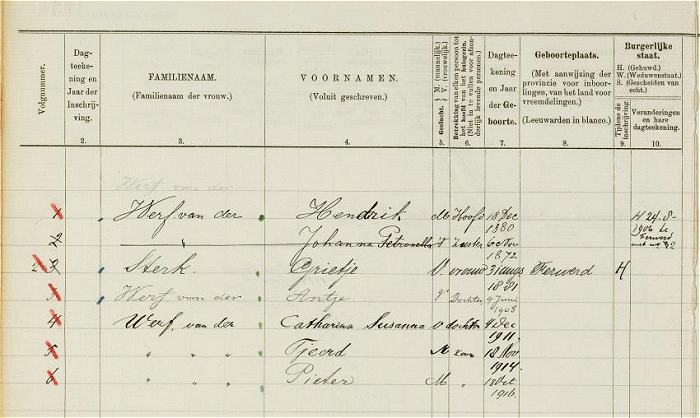 Volgnummer.
Dag-
teeke-
ning en
Jaar der
Inschrij-
ving.
FAMILIENAAM.
(Familienaam der vrouw.)
VOORNAMEN.
(Voluit geschreven.)
Geslacht. M. (mannelijk.)
V. (vrouwelijk.)
Betrekking van elken persoon tot
het hoofd van het huisgezin.
(Niet in te vullen voor afzon-
derlijk levende personen.)
Dagtee-
kening
en Jaar
der Ge-
boorte.
Geboorteplaats.
(Met aanwijzing der
provincie voor inboor-
lingen, van het land voor
vreemdelingen.)
(Leeuwarden in blanco.)
Burgerlijke
staat.
H. (Gehuwd.)
W. (Weduwenstaat.)
S. (Gescheiden van
echt.)
Tijdens de
inschrijving.
Veranderingen
en hare
dagteekening.
2. 3. 4. 5. 6. 7. 8. 9. 10.
Werf van der
1 Werf van der Hendrik M Hoofd 18 Dec 1880 H 24-8-
1906 te
Ferwerd
2 " Johanna Petronella V Zuster Nov 1872
Sterk Grietje V vrouw 31 Aug 1881 Ferwerd H
3 Werf van der Antje V Dochter 9 Juni 1908
4 Werf, van der Catharina Susanna V dochter 4 Dec 1911.
5 " " " Tjeerd M zoon 18 Nov 1914.
6 " " " Pieter M " Oct 1916.